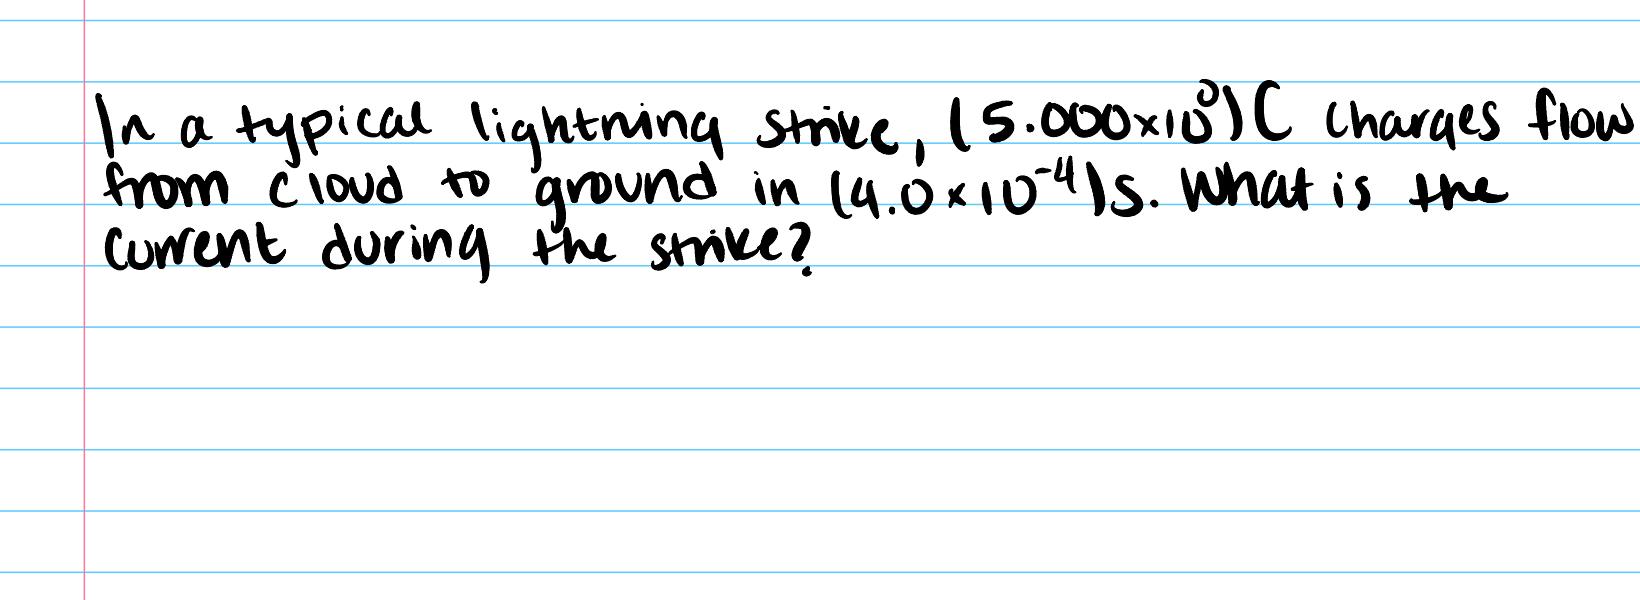 In a typical lightning strike, (5.000×10⁰)C charges flow
from cloud to ground in (4.0×10⁻⁴)s. What is the
current during the strike?